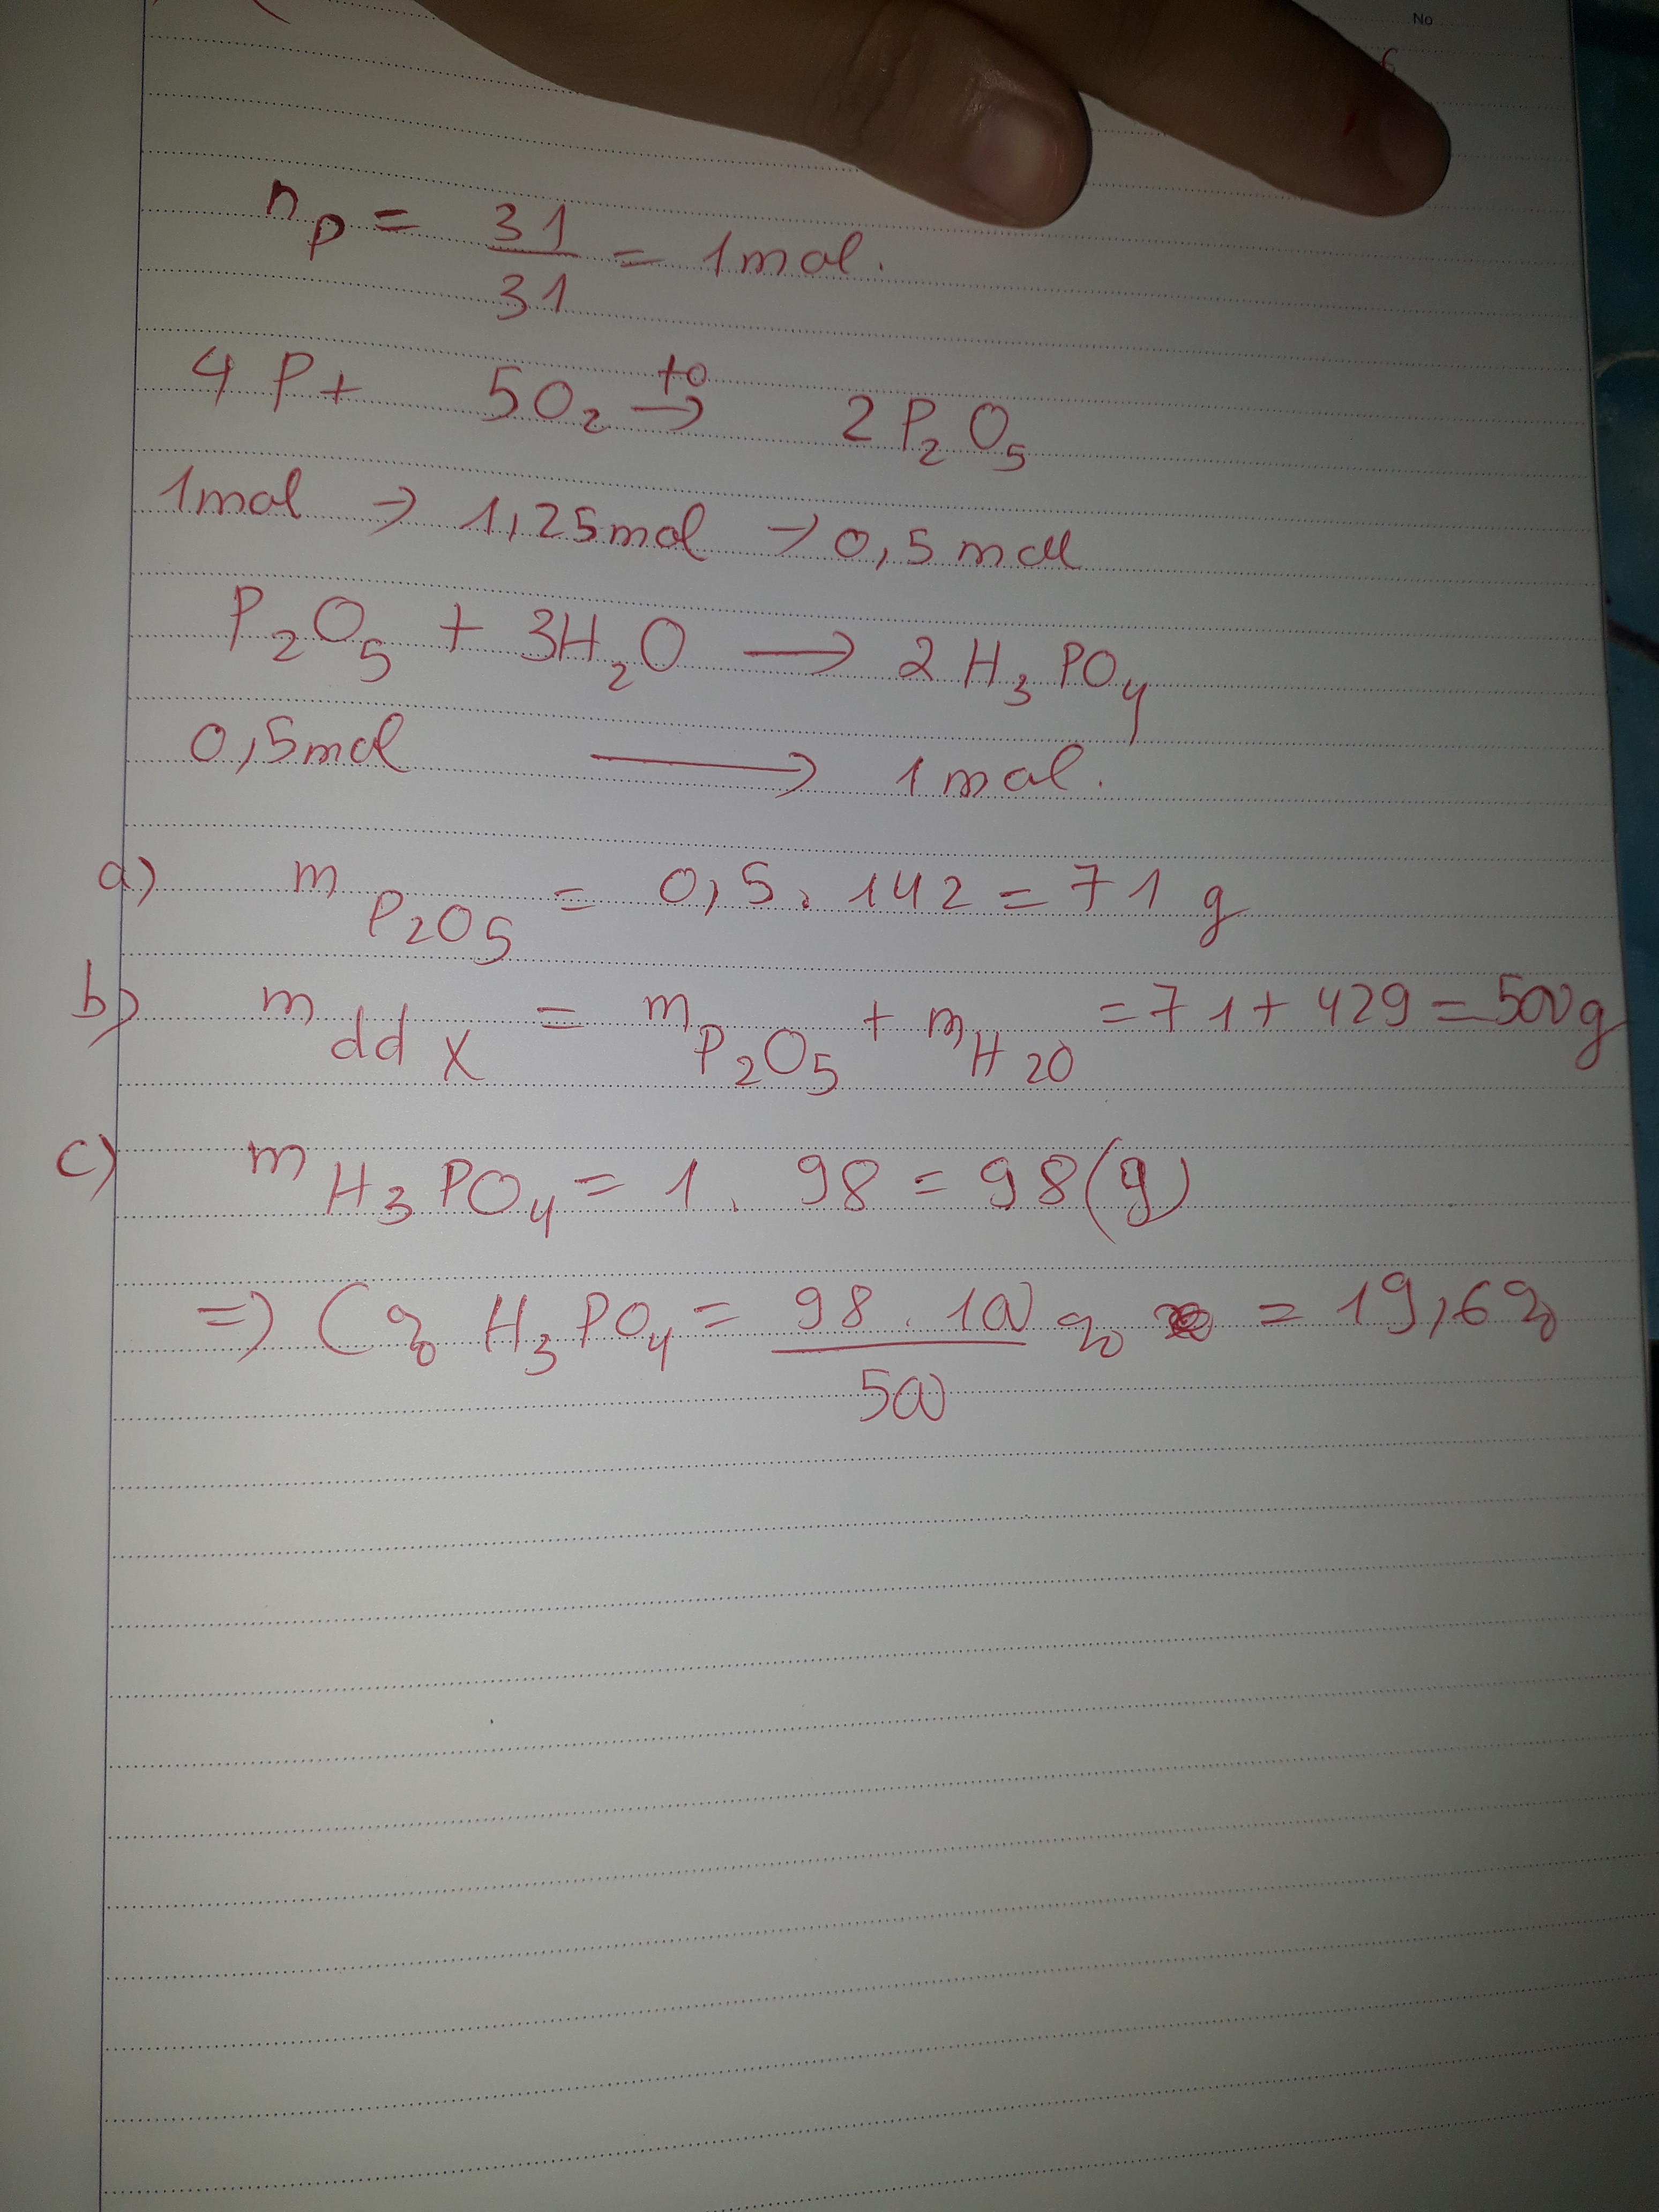 No
6
n_P = 31/31 = 1mol.
4P + 5O₂ →(to) 2P₂O₅
1mol → 1,25mol → 0,5mol
P₂O₅ + 3H₂O → 2H₃PO₄
0,5mol → 1mol.
a) m P₂O₅ = 0,5 . 142 = 71 g
b) m dd X = m P₂O₅ + m H₂O = 71 + 429 = 500g
c) m H₃PO₄ = 1 . 98 = 98(g)
=> C% H₃PO₄ = 98 . 100/500 % = 19,6%